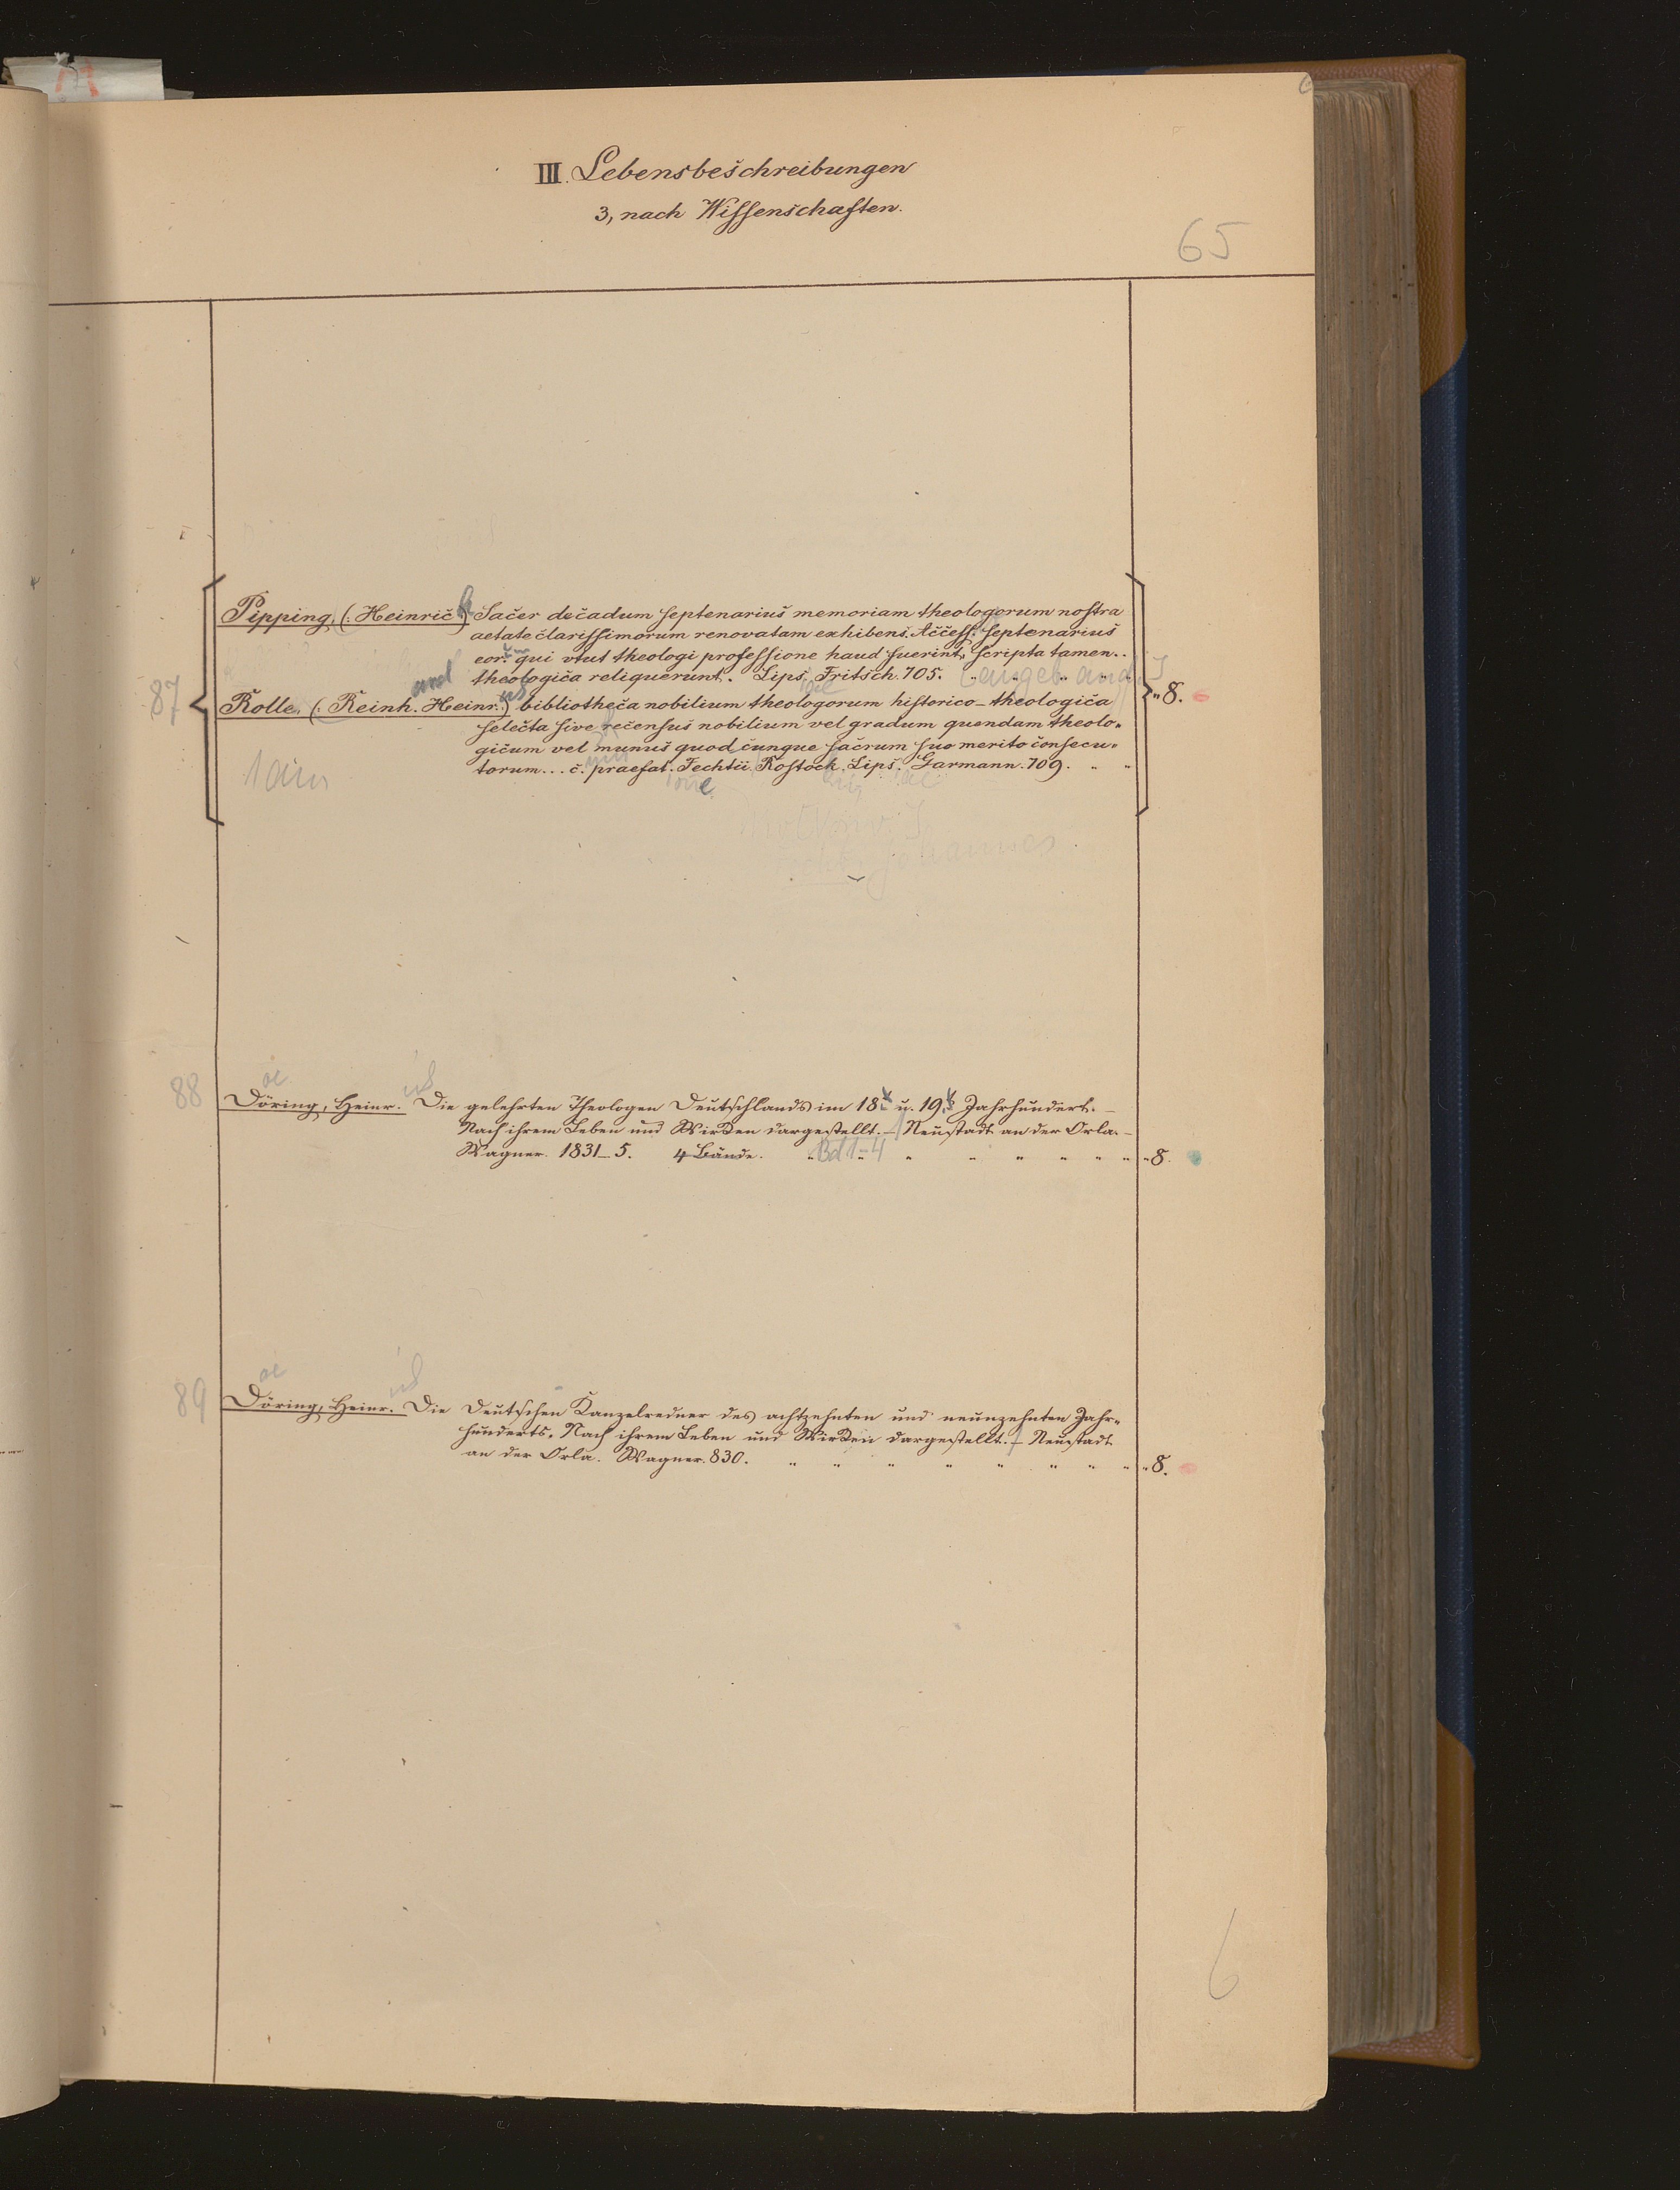 III. Lebensbeschreibungen
3, nach Wissenschaften.
65
87
Pipping, (: Heinrich) Sacer decadum septenarius memoriam theologorum nostra
aetate clarissimorum renovatam exhibens. Access. septenarius
eor. qui vtut theologi professione haud fuerint, scripta tamen..
theologica reliquerunt. Lips. Fritsch. 705. " " " " "
Rolle, (: Reinh. Heinr.:) bibliotheca nobilium theologorum historico-theologica
selecta sive recensus nobilium vel gradum quendam theolo=
gicum vel munus quod cunque sacrum suo merito consecu=
torum... c. praefat. Fechtii Rostock. Lips. Garmann. 709. " "
" 8.
Johannes
88
Döring, Heinr. Die gelehrten Theologen Deutschlands im 18 u. 19 Jahrhundert. –
Nach ihrem Leben und Wirken dargestellt. – Neustadt an der Orla. –
Wagner. 1831–5. 4 Bände. Bd 1–4 " " " " " " " 8.
89
Döring, Heinr. Die deutschen Kanzelredner des achtzehnten und neunzehnten Jahr=
hunderts. Nach ihrem Leben und Wirken dargestellt. – Neustadt
an der Orla. Wagner. 830. " " " " " " " " " 8.
6